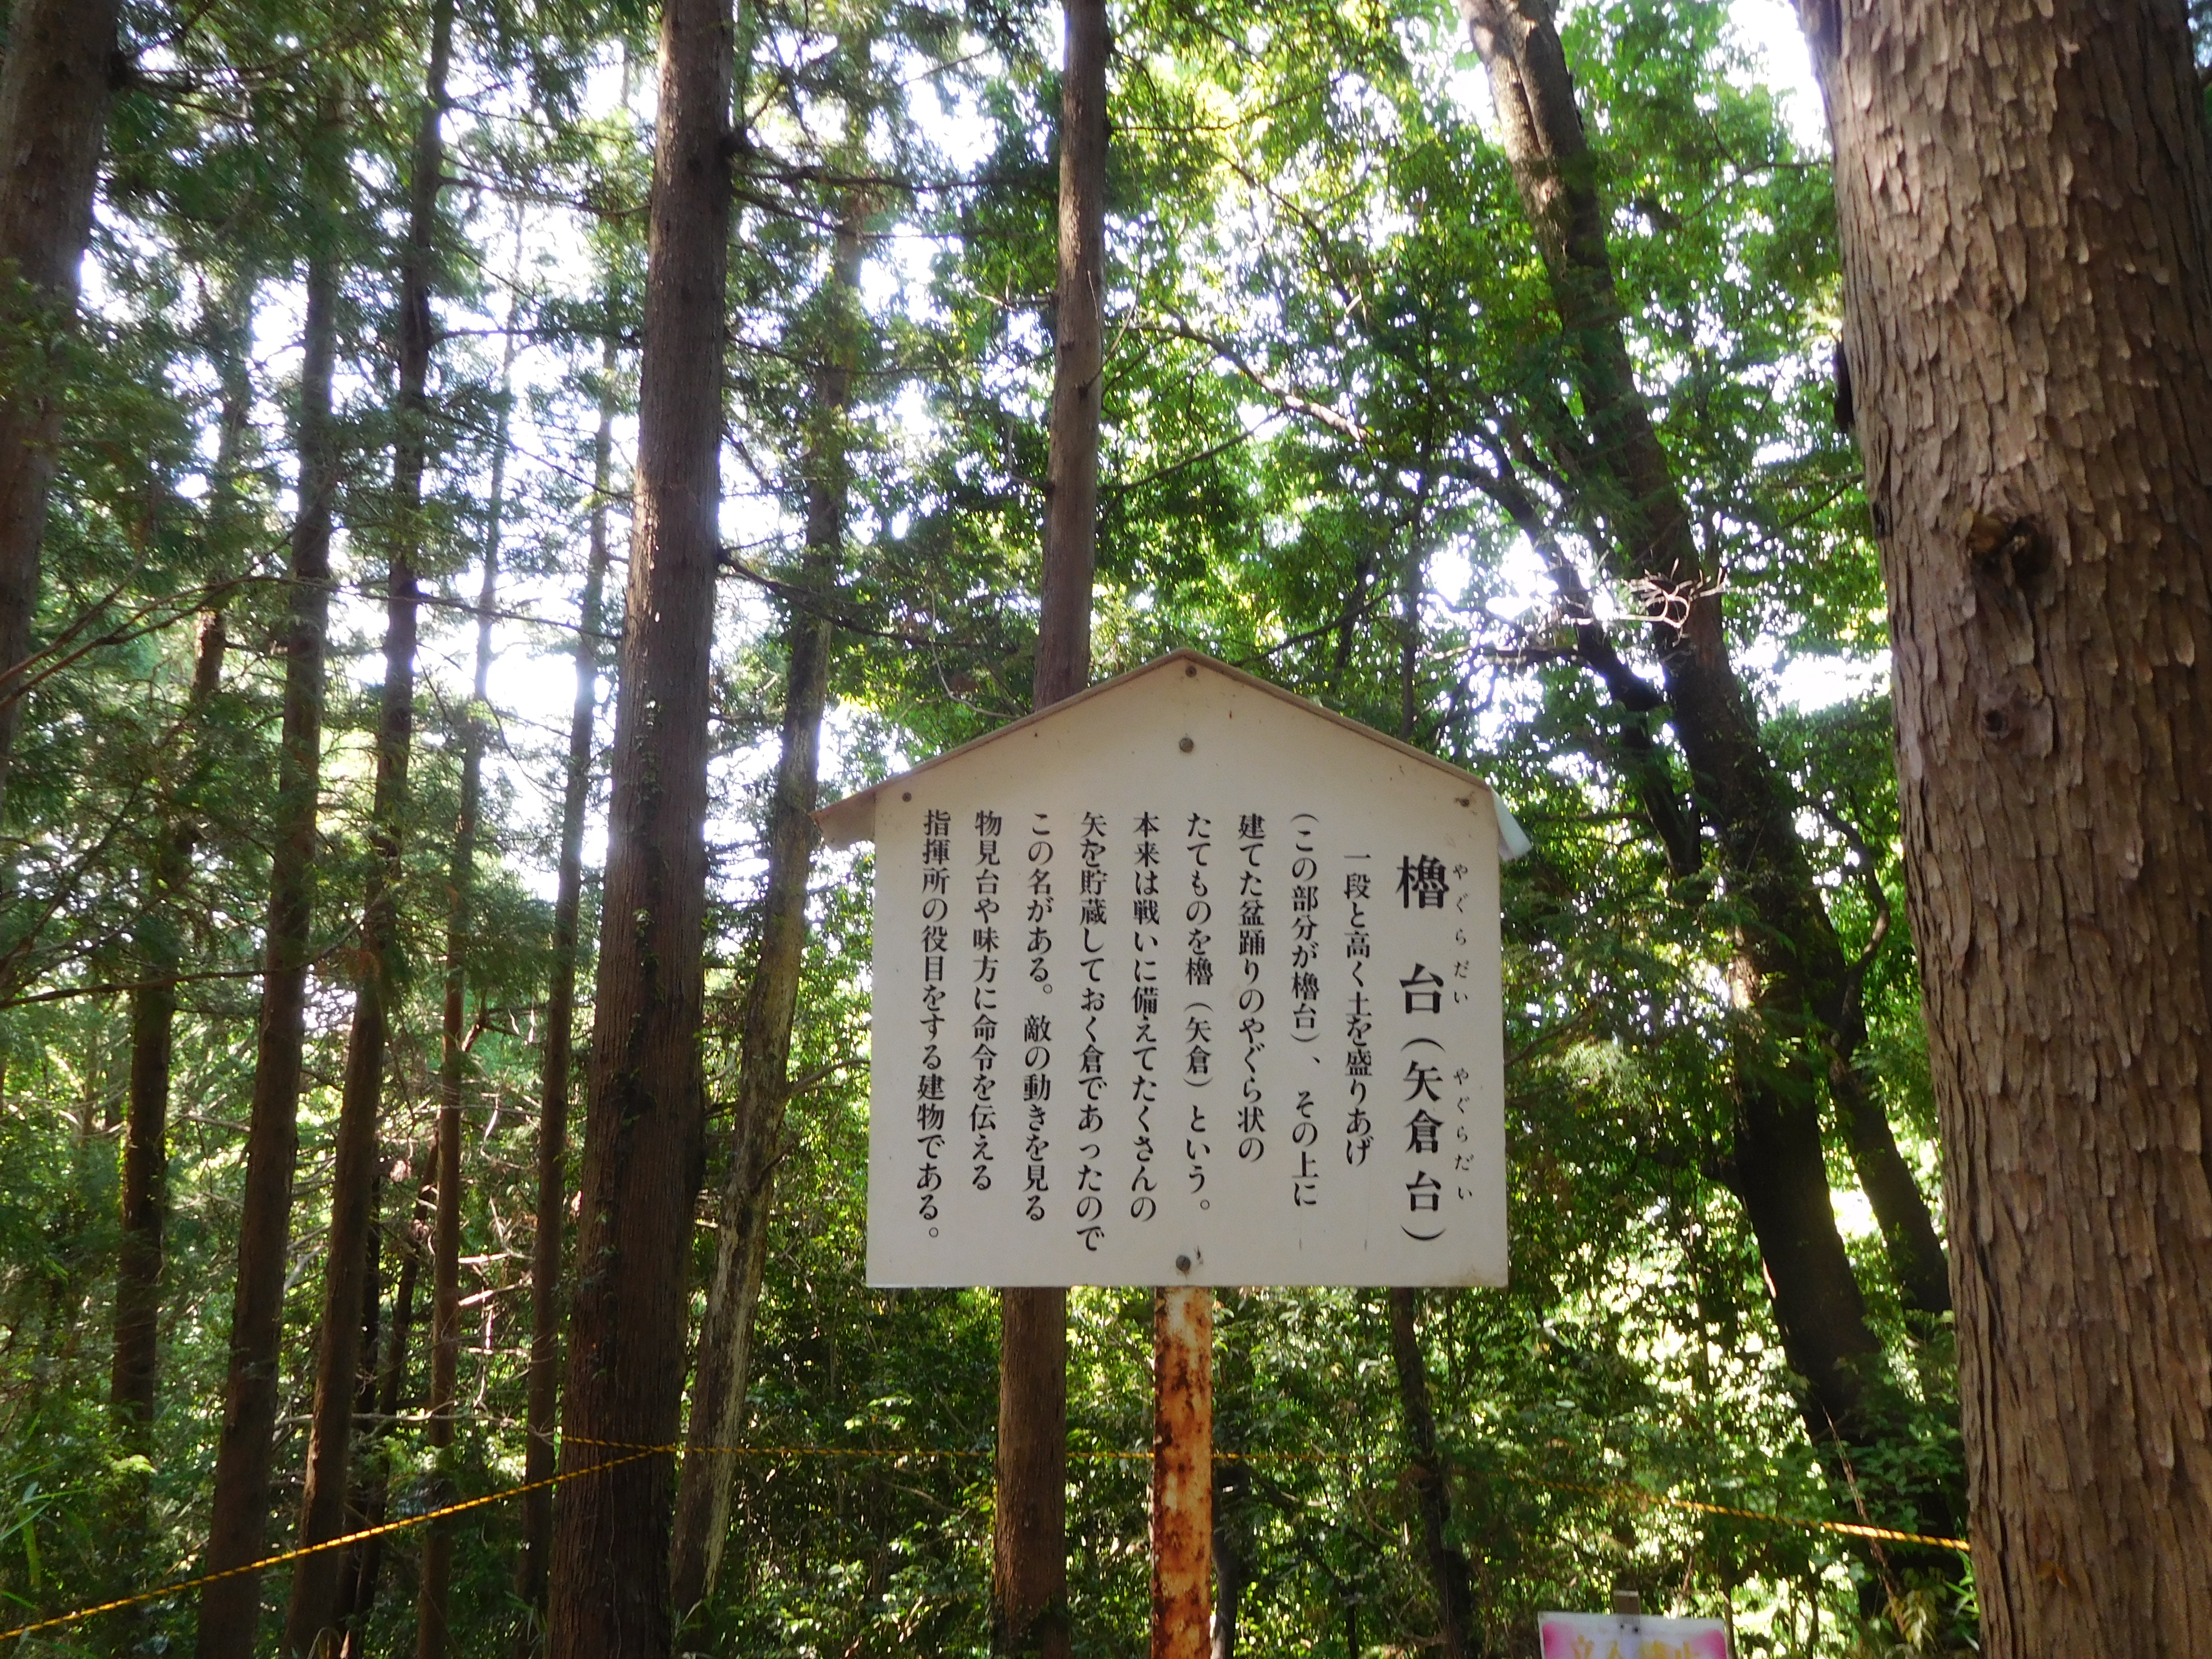 櫓台(矢倉台)
やぐらだい
やぐらだい
一段と高く土を盛りあげ
(この部分が櫓台)、その上に
建てた盆踊りのやぐら状の
たてものを櫓(矢倉)という。
本来は戦いに備えてたくさんの
矢を貯蔵しておく倉であったので
この名がある。敵の動きを見る
物見台や味方に命令を伝える
指揮所の役目をする建物である。